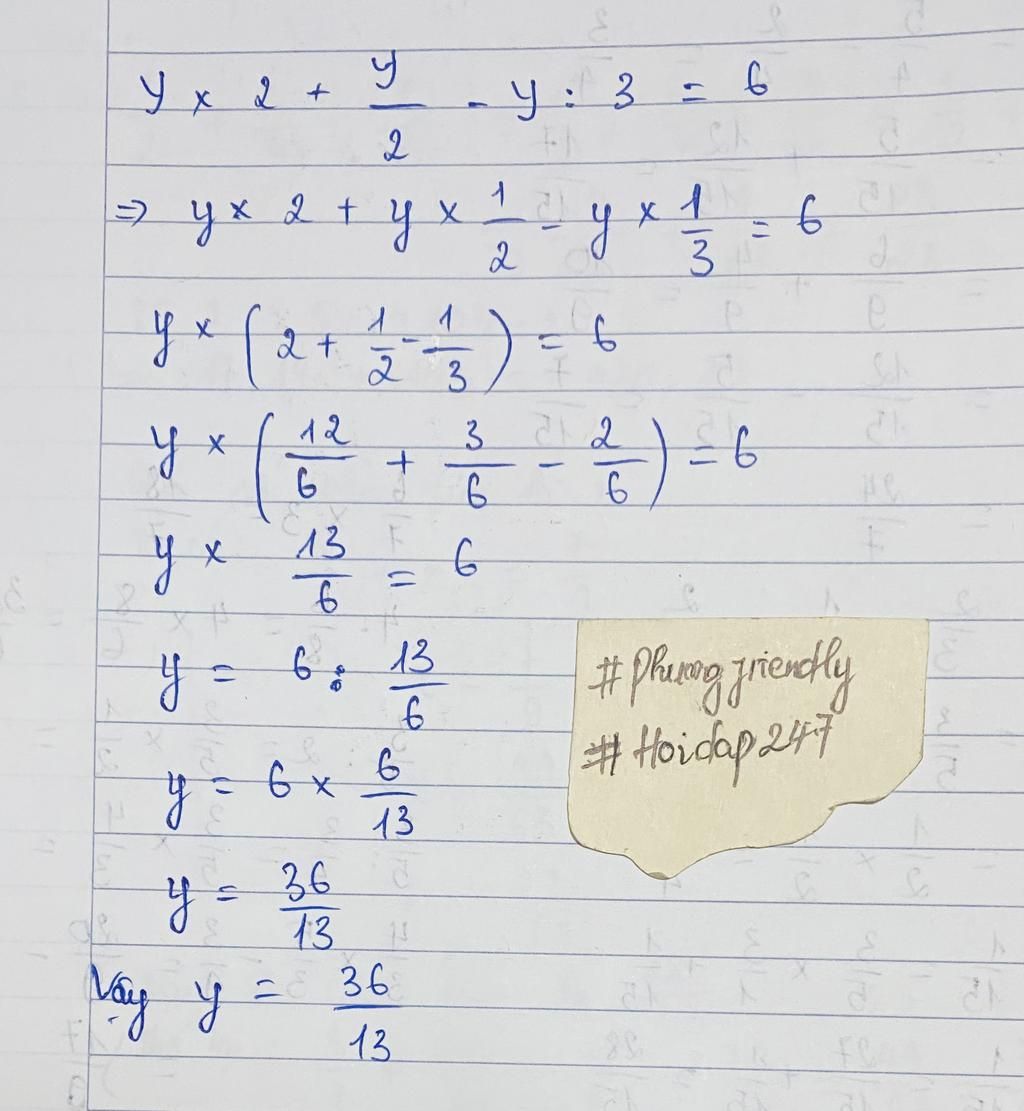 y × 2 + y/2 - y : 3 = 6
⇒ y × 2 + y × 1/2 - y × 1/3 = 6
y × (2 + 1/2 - 1/3) = 6
y × (12/6 + 3/6 - 2/6) = 6
y × 13/6 = 6
y = 6 : 13/6
y = 6 × 6/13
y = 36/13
Vậy y = 36/13
# Phương friendly
# Hoidap247